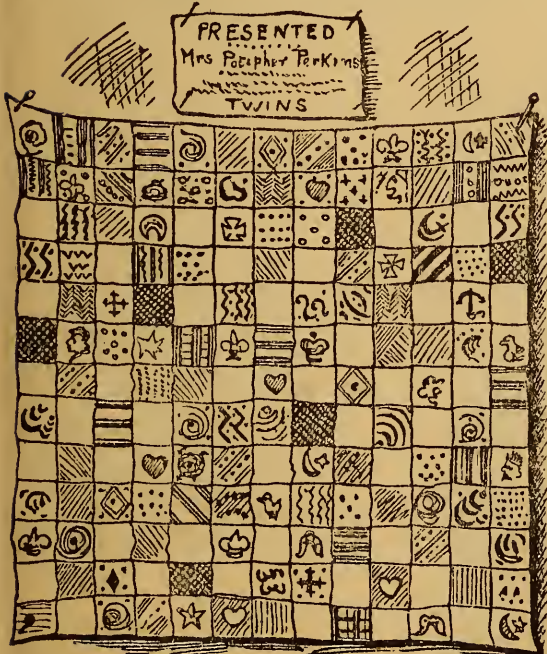 PRESENTED
Mrs Potiphar Perkins
TWINS